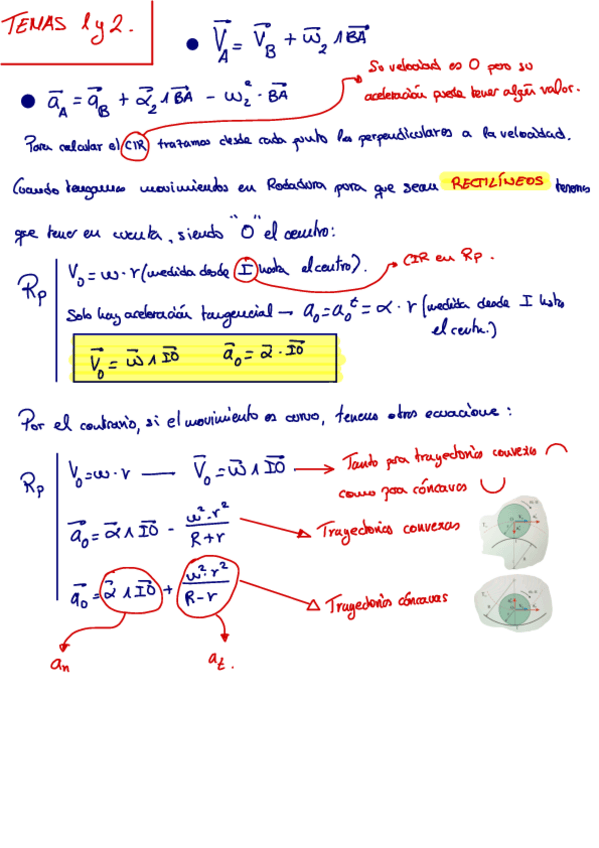 TEMAS 1 y 2.
• V⃗_A = V⃗_B + ω⃗_2 ∧ B⃗A
Su velocidad es 0 pero su
aceleración puede tener algún valor.
• a⃗_A = a⃗_B + α⃗_2 ∧ B⃗A − ω_2² · B⃗A
Para calcular el CIR trazamos desde cada punto las perpendiculares a la velocidad.
Cuando tengamos movimientos en Rodadura para que sean RECTILÍNEOS tenemos
que tener en cuenta, siendo "O" el centro:
Rp
V_0 = ω · r (medida desde I hasta el centro).
CIR en Rp.
Solo hay aceleración tangencial → a_0 = a_0^t = α · r (medida desde I hasta
el centro.)
V⃗_0 = ω⃗ ∧ I⃗O a⃗_0 = α⃗ · I⃗O
Por el contrario, si el movimiento es curvo, tenemos otras ecuaciones:
Rp
V_0 = ω · r — V⃗_0 = ω⃗ ∧ I⃗O → Tanto para trayectorias convexas
como para cóncavas
a⃗_0 = α⃗ ∧ I⃗O − ω² · r² / R + r → Trayectorias convexas
a⃗_0 = α⃗ ∧ I⃗O + ω² · r² / R − r → Trayectorias cóncavas
a_n a_t.